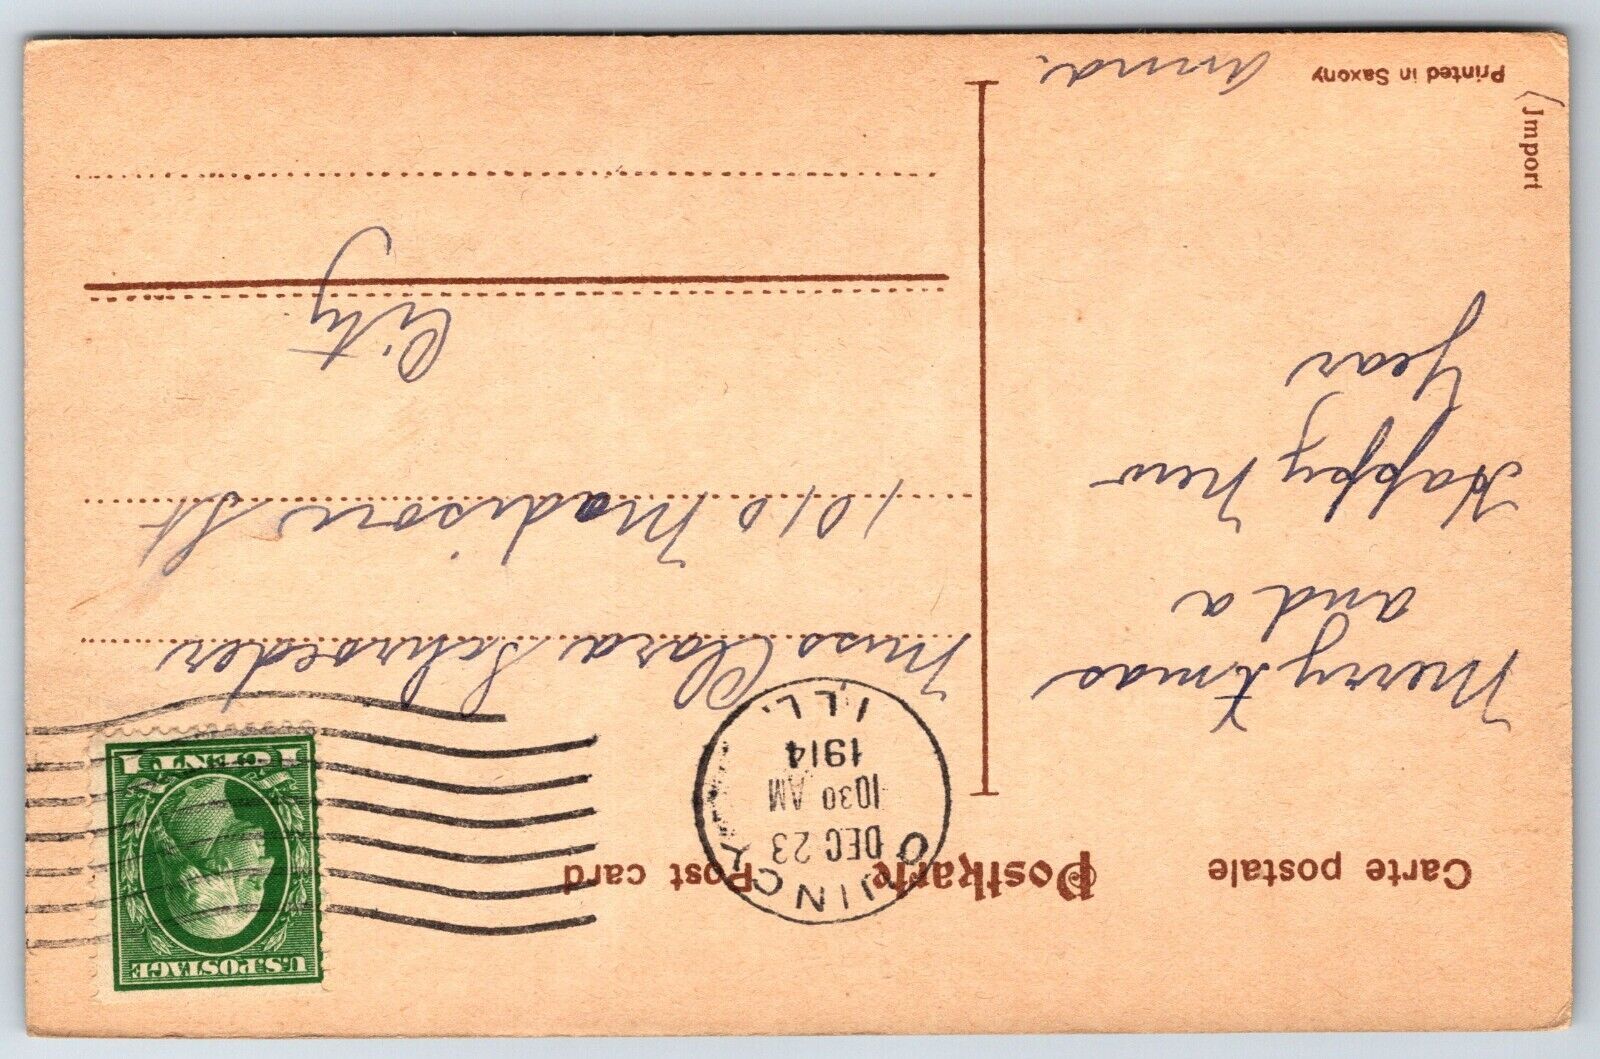 Carte postale
Postkarte
Post card
U.S. POSTAGE
1 CENT 1
QUINCY
DEC 23
1030 AM
1914
ILL.
Merry Xmas
and a
Happy New
Year
Anna.
Miss Clara Schroeder
1010 Madison St
City
Printed in Saxony
(Jmport